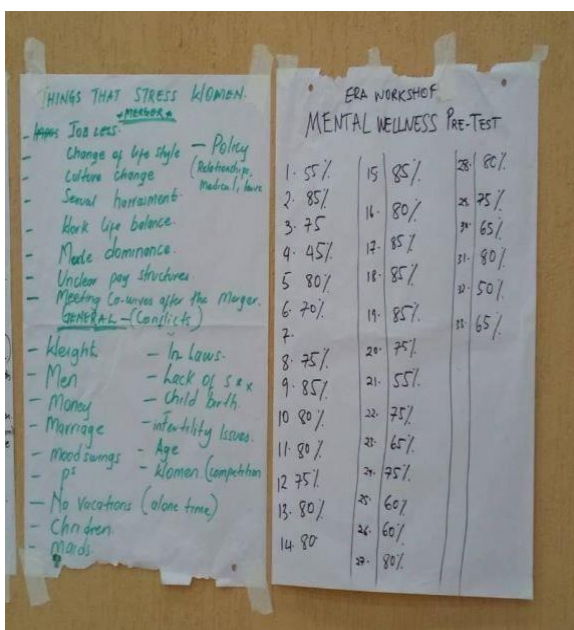 THINGS THAT STRESS WOMEN.
MERGER
- Job Less.
- Change of life style
- Culture change
- Sexual harrasment.
- Work life balance.
- Male dominance.
- Unclear pay structures.
- Meeting Co-wives after the Merger.
- Policy
(Relationships,
Medical, leave
GENERAL - (Conflicts)
- Weight
- Men
- Money
- Marriage
- Mood swings
- Ps
- No Vacations (alone time)
- Children.
- Maids.
- In Laws.
- Lack of sex
- Child birth.
- infertility Issues.
- Age
- Women (competition
ERA WORKSHOP
MENTAL WELLNESS PRE-TEST
1. 55%
2. 85%
3. 75
4. 45%
5 80%
6. 70%
7.
8. 75%
9. 85%
10 80%
11. 80%
12 75%
13. 80%
14. 80
15 85%
16. 80%
17. 85%
18. 85%
19. 85%
20. 75%
21. 55%
22. 75%
23. 65%
24. 75%
25. 60%
26. 60%
27. 80%
28. 80%
29. 75%
30. 65%
31. 80%
32. 50%
33. 65%